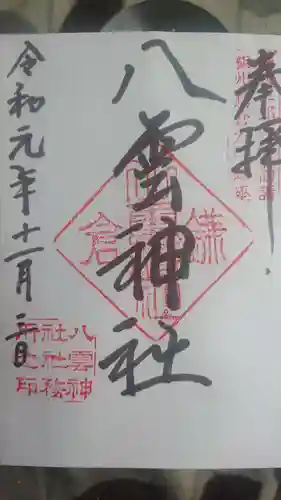 奉拝
八雲神社
鎌倉
八雲神社
令和元年十一月二日
八雲神
社社務
所之印